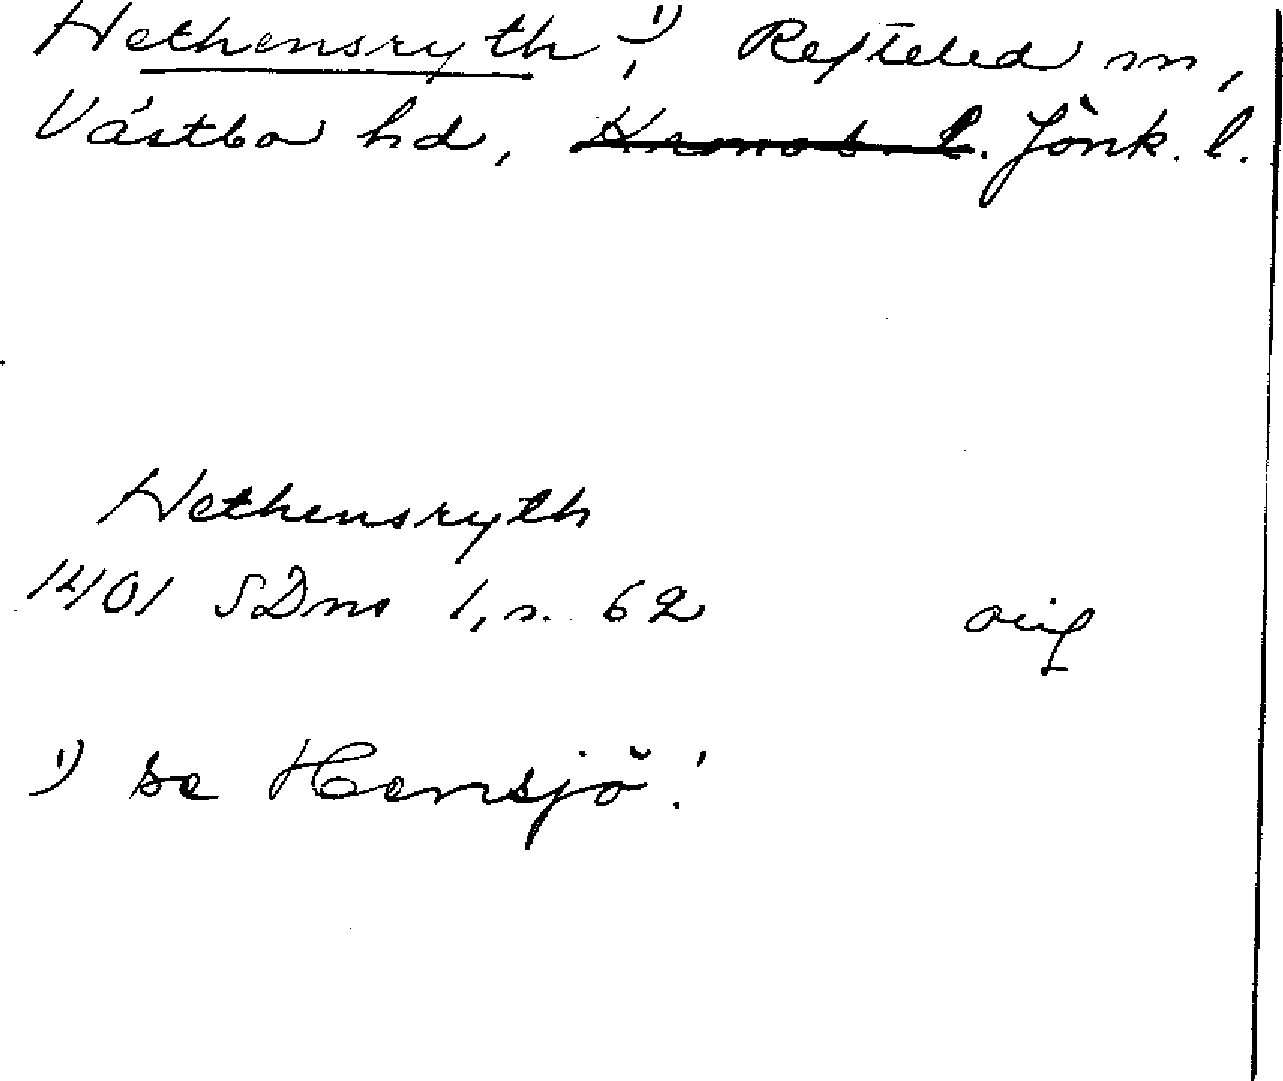 Hethensryth ¹⁾, Refteled sn,
Västbo hd, Kronob. l. Jönk. l.
Hethensryth
1401 SDns 1, s. 62 orig
¹⁾ se Hemsjö!